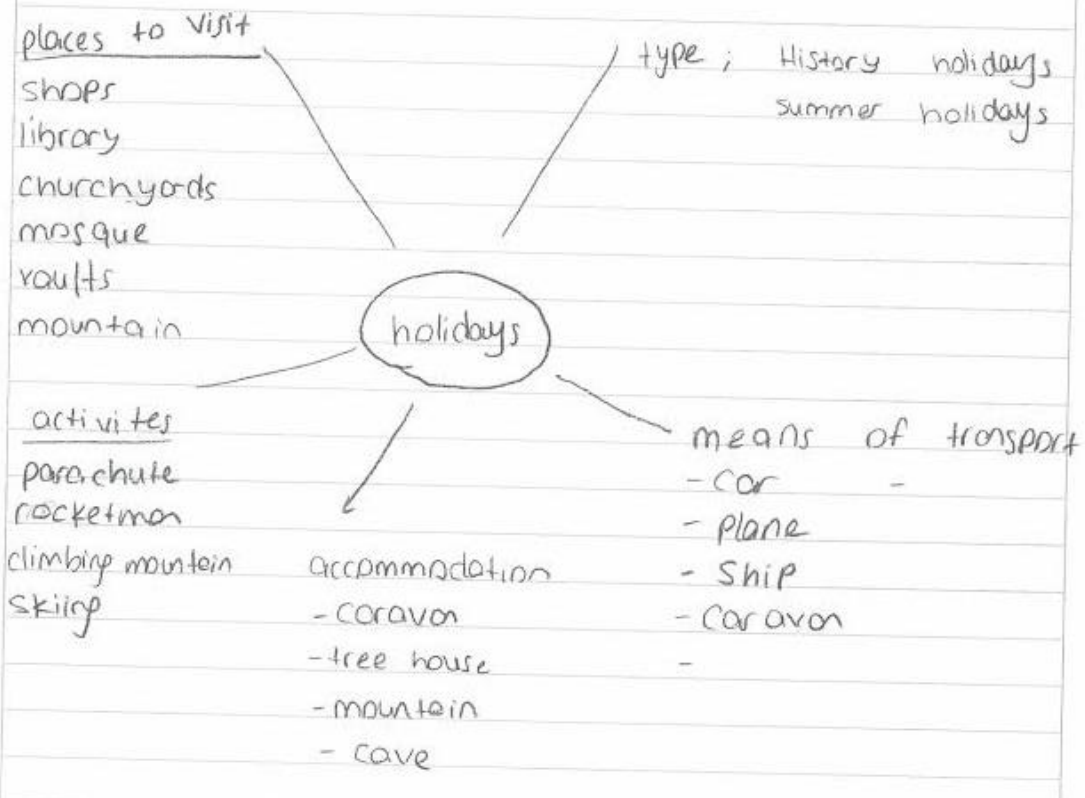 places to visit
shops
library
churchyards
mosque
vaults
mountain
type ; History holidays
summer holidays
holidays
activites
parachute
rocketman
climbing mountain
skiing
accommodation
- caravan
- tree house
- mountain
- cave
means of transport
- car -
- plane
- ship
- caravan
-